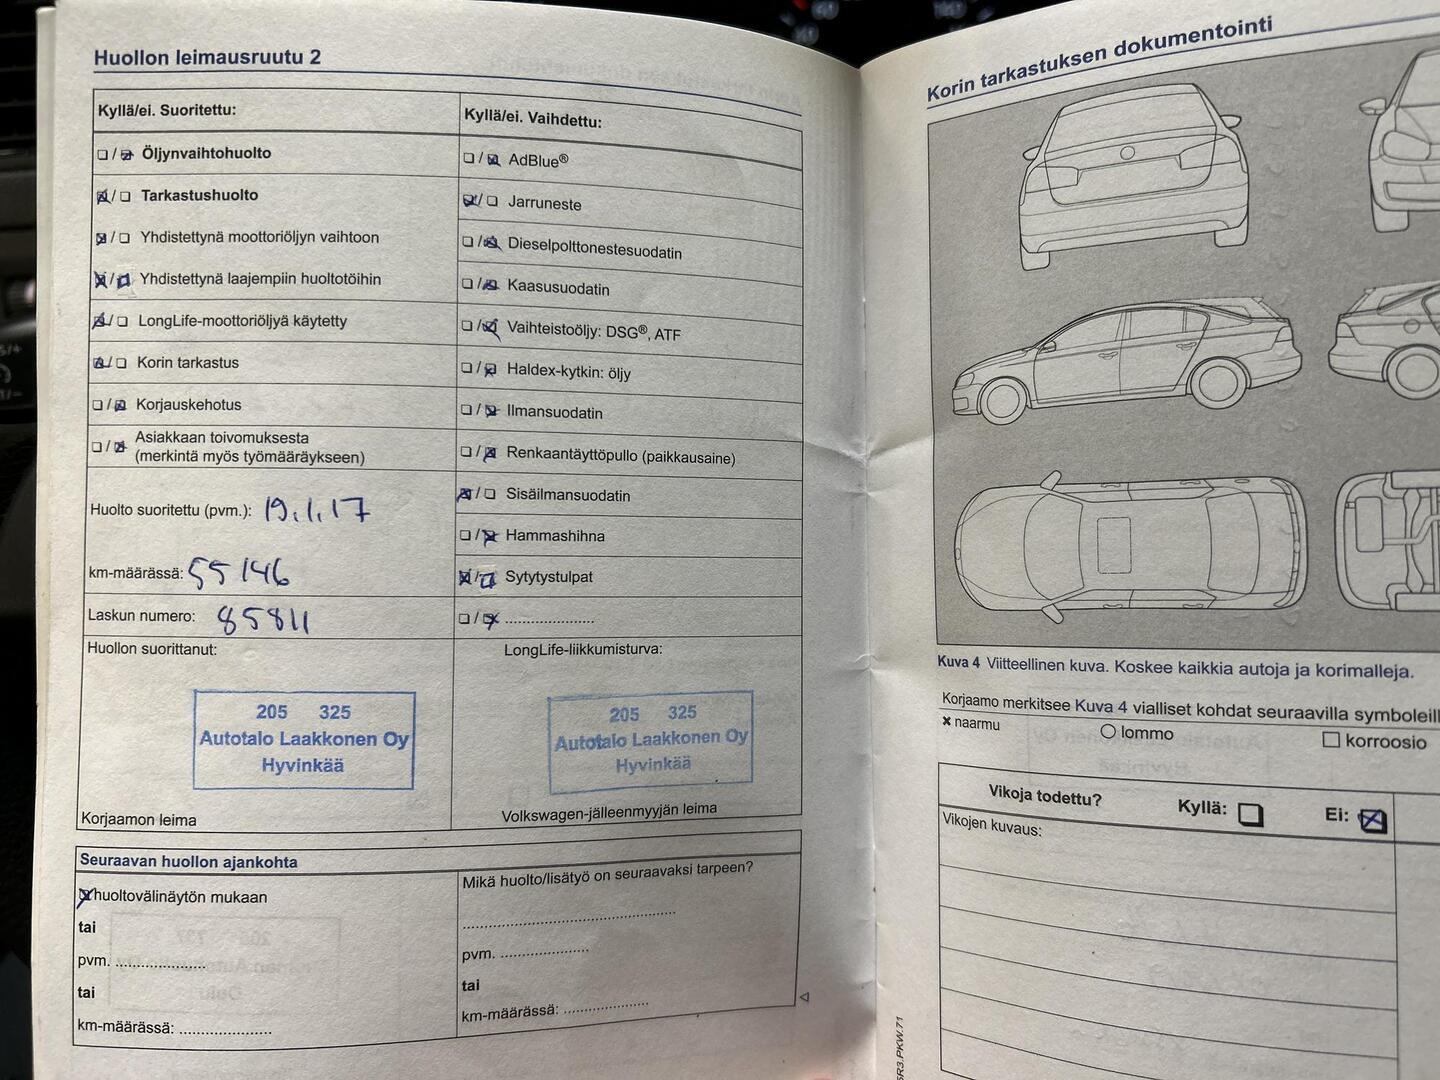 Huollon leimausruutu 2
Kyllä/ei. Suoritettu:
Öljynvaihtohuolto
Tarkastushuolto
Yhdistettynä moottoriöljyn vaihtoon
Yhdistettynä laajempiin huoltotöihin
LongLife-moottoriöljyä käytetty
Korin tarkastus
Korjauskehotus
Asiakkaan toivomuksesta
(merkintä myös työmääräykseen)
Huolto suoritettu (pvm.): 19.1.17
km-määrässä: 55146
Laskun numero: 85811
Huollon suorittanut:
205 325
Autotalo Laakkonen Oy
Hyvinkää
Korjaamon leima
Kyllä/ei. Vaihdettu:
AdBlue®
Jarruneste
Dieselpolttonestesuodatin
Kaasusuodatin
Vaihteistoöljy: DSG®, ATF
Haldex-kytkin: öljy
Ilmansuodatin
Renkaantäyttöpullo (paikkausaine)
Sisäilmansuodatin
Hammashihna
Sytytystulpat
......................
LongLife-liikkumisturva:
205 325
Autotalo Laakkonen Oy
Hyvinkää
Volkswagen-jälleenmyyjän leima
Seuraavan huollon ajankohta
huoltovälinäytön mukaan
tai
pvm. ......................
tai
km-määrässä: ......................
Mikä huolto/lisätyö on seuraavaksi tarpeen?
......................................................
pvm. ......................
tai
km-määrässä: .....................
Korin tarkastuksen dokumentointi
Kuva 4 Viitteellinen kuva. Koskee kaikkia autoja ja korimalleja.
Korjaamo merkitsee Kuva 4 vialliset kohdat seuraavilla
naarmu
lommo
korroosio
Vikoja todettu?
Kyllä:
Ei:
Vikojen kuvaus: